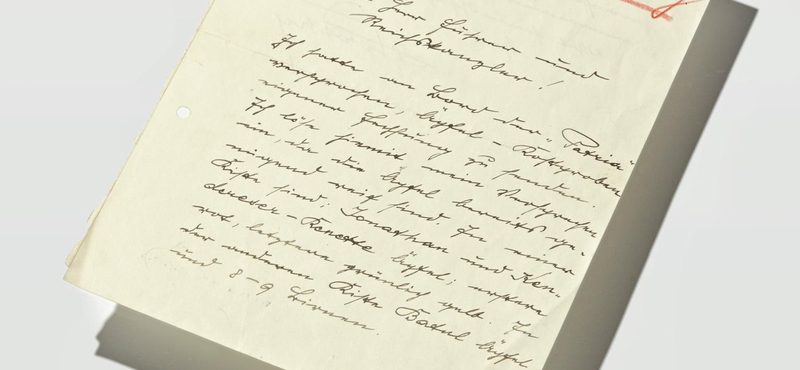 Herr Führer und
Reichskanzler!
Ich hatte an Bord der „Patria“
versprochen, Äpfel-Kostproben
eigener Fechsung zu senden.
Ich löse hiemit mein Versprechen
ein, da die Äpfel bereits ge-
nügend reif sind. In einer
Kiste sind: Jonathan und Ken-
dereser-Renette Äpfel; erstere
rot, letztere grünlich gelb. In
der anderen Kiste Batul Äpfel
und 8-9 Birnen.